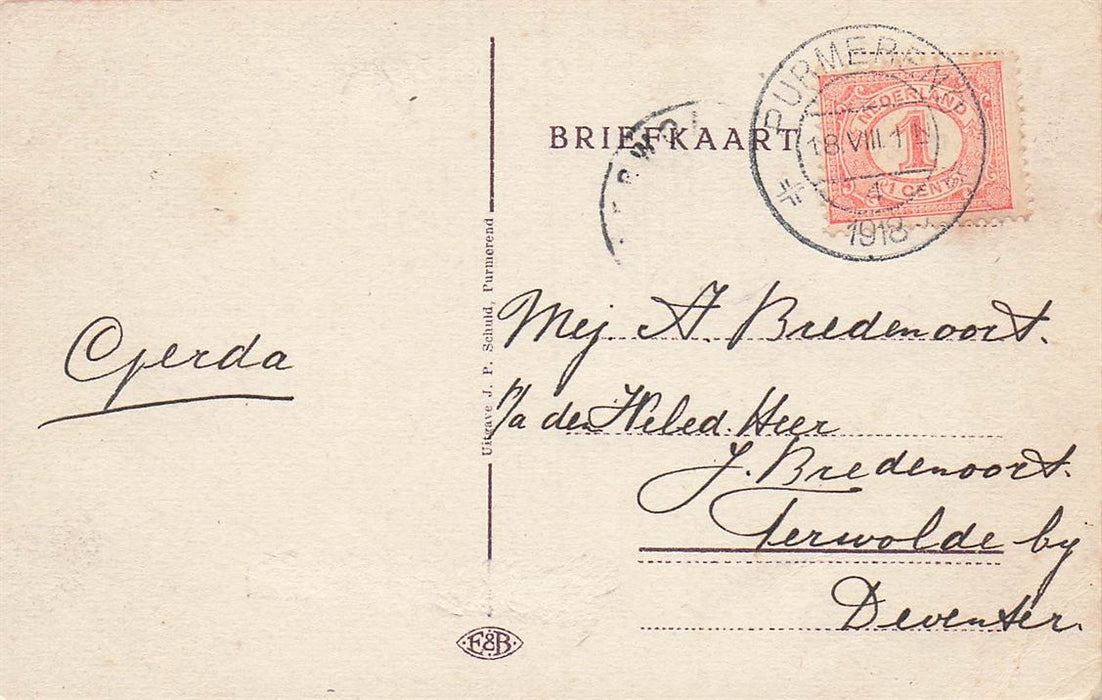 BRIEFKAART
PURMEREND
18.VIII.1
4
1918
NEDERLAND
1
1 CENT
Gerda
Uitgave J. P. Schuld, Purmerend
Mej. A. Bredenoort.
p/a den Weled. Heer
J. Bredenoort.
Terwolde by
Deventer.
E&B